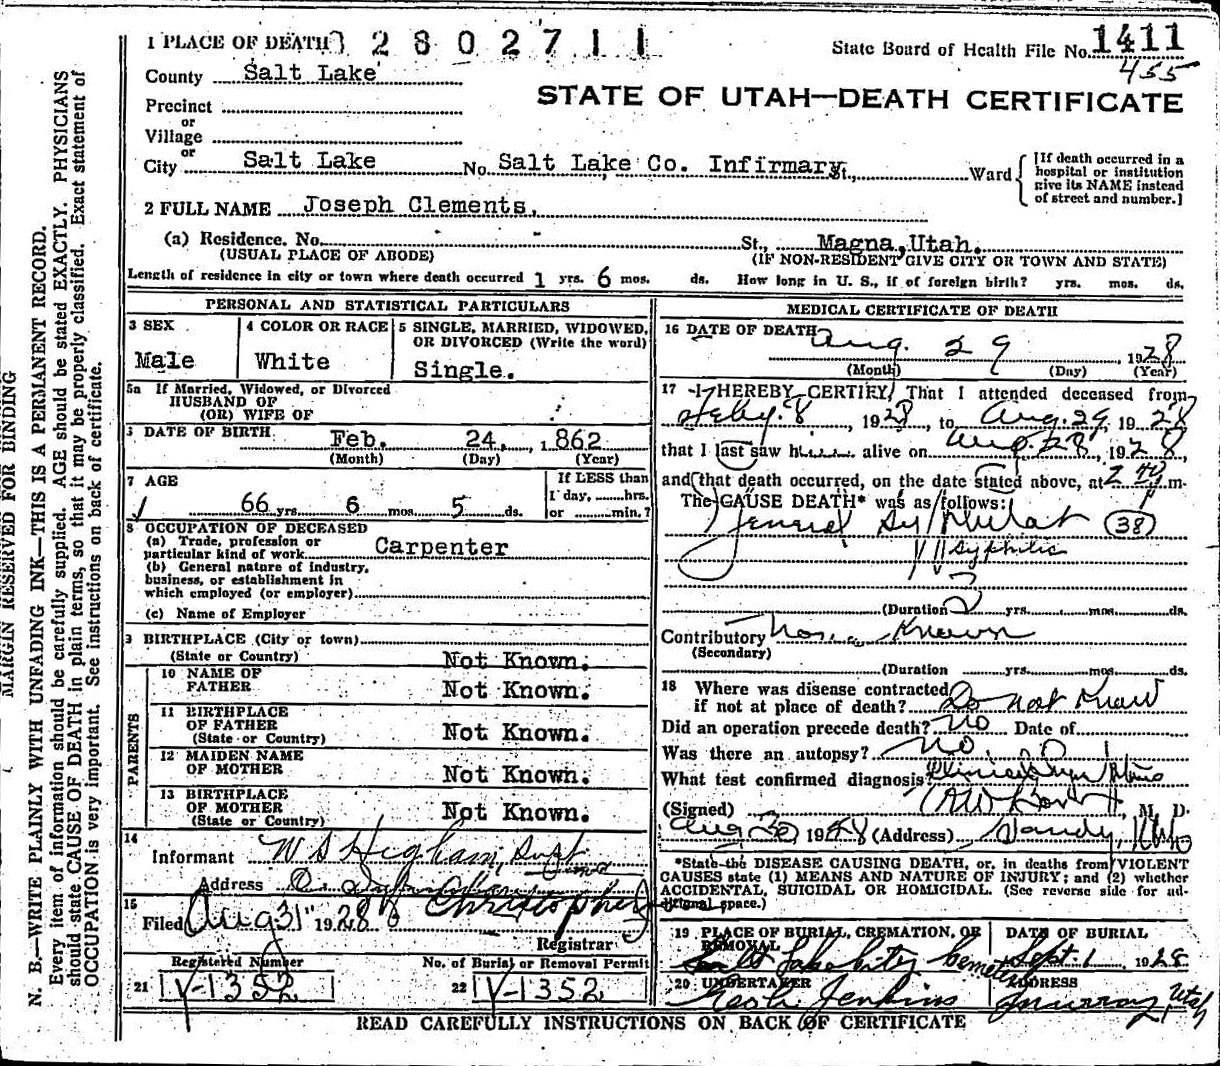 1 PLACE OF DEATH 2802711 State Board of Health File No. 1411
455
County Salt Lake
STATE OF UTAH—DEATH CERTIFICATE
Precinct
or
Village
or
City Salt Lake No. Salt Lake Co. Infirmary St., Ward
[If death occurred in a hospital or institution give its NAME instead of street and number.]
2 FULL NAME Joseph Clements.
(a) Residence. No. St., Magna, Utah.
(USUAL PLACE OF ABODE) (IF NON-RESIDENT GIVE CITY OR TOWN AND STATE)
Length of residence in city or town where death occurred 1 yrs. 6 mos. ds. How long in U. S., if of foreign birth? yrs. mos. ds.
PERSONAL AND STATISTICAL PARTICULARS
3 SEX
Male
4 COLOR OR RACE
White
5 SINGLE, MARRIED, WIDOWED, OR DIVORCED (Write the word)
Single.
5a If Married, Widowed, or Divorced
HUSBAND OF
(OR) WIFE OF
DATE OF BIRTH Feb. 24, 1862
(Month) (Day) (Year)
7 AGE
66 yrs. 6 mos. 5 ds.
If LESS than
1 day, hrs.
or min.?
8 OCCUPATION OF DECEASED
(a) Trade, profession or
particular kind of work Carpenter
(b) General nature of industry,
business, or establishment in
which employed (or employer)
(c) Name of Employer
9 BIRTHPLACE (City or town)
(State or Country) Not Known.
PARENTS
10 NAME OF
FATHER Not Known.
11 BIRTHPLACE
OF FATHER Not Known.
(State or Country)
12 MAIDEN NAME
OF MOTHER Not Known.
13 BIRTHPLACE
OF MOTHER Not Known.
(State or Country)
14
Informant W S Higham, Supt
Address
15
Filed Aug 31 1928
Registrar
Registered Number No. of Burial or Removal Permit
21 V-1352 22 V-1352
MEDICAL CERTIFICATE OF DEATH
16 DATE OF DEATH Aug. 29, 1928
(Month) (Day) (Year)
17 I HEREBY CERTIFY, That I attended deceased from
Feby. 8, 1928, to Aug. 29, 1928
that I last saw him alive on Aug. 28, 1928,
and that death occurred, on the date stated above, at m.
The CAUSE DEATH* was as follows:
General (38)
Syphilis
(Duration yrs. mos. ds.
Contributory None Known
(Secondary)
(Duration yrs. mos. ds.
18 Where was disease contracted
if not at place of death? Do not Know
Did an operation precede death? No Date of
Was there an autopsy? No.
What test confirmed diagnosis? Clinical
(Signed) M. D.
Aug 30 1928 (Address) Sandy, Utah
*State the DISEASE CAUSING DEATH, or, in deaths from VIOLENT
CAUSES state (1) MEANS AND NATURE OF INJURY; and (2) whether
ACCIDENTAL, SUICIDAL OR HOMICIDAL. (See reverse side for additional space.)
19 PLACE OF BURIAL, CREMATION, OR REMOVAL DATE OF BURIAL
Salt Lake City Cemetery Sept. 1 1928
20 UNDERTAKER ADDRESS
Jenkins Murray, Utah
READ CAREFULLY INSTRUCTIONS ON BACK OF CERTIFICATE
MARGIN RESERVED FOR BINDING
N. B.—WRITE PLAINLY WITH UNFADING INK—THIS IS A PERMANENT RECORD.
Every item of information should be carefully supplied. AGE should be stated EXACTLY. PHYSICIANS
should state CAUSE OF DEATH in plain terms, so that it may be properly classified. Exact statement of
OCCUPATION is very important. See instructions on back of certificate.